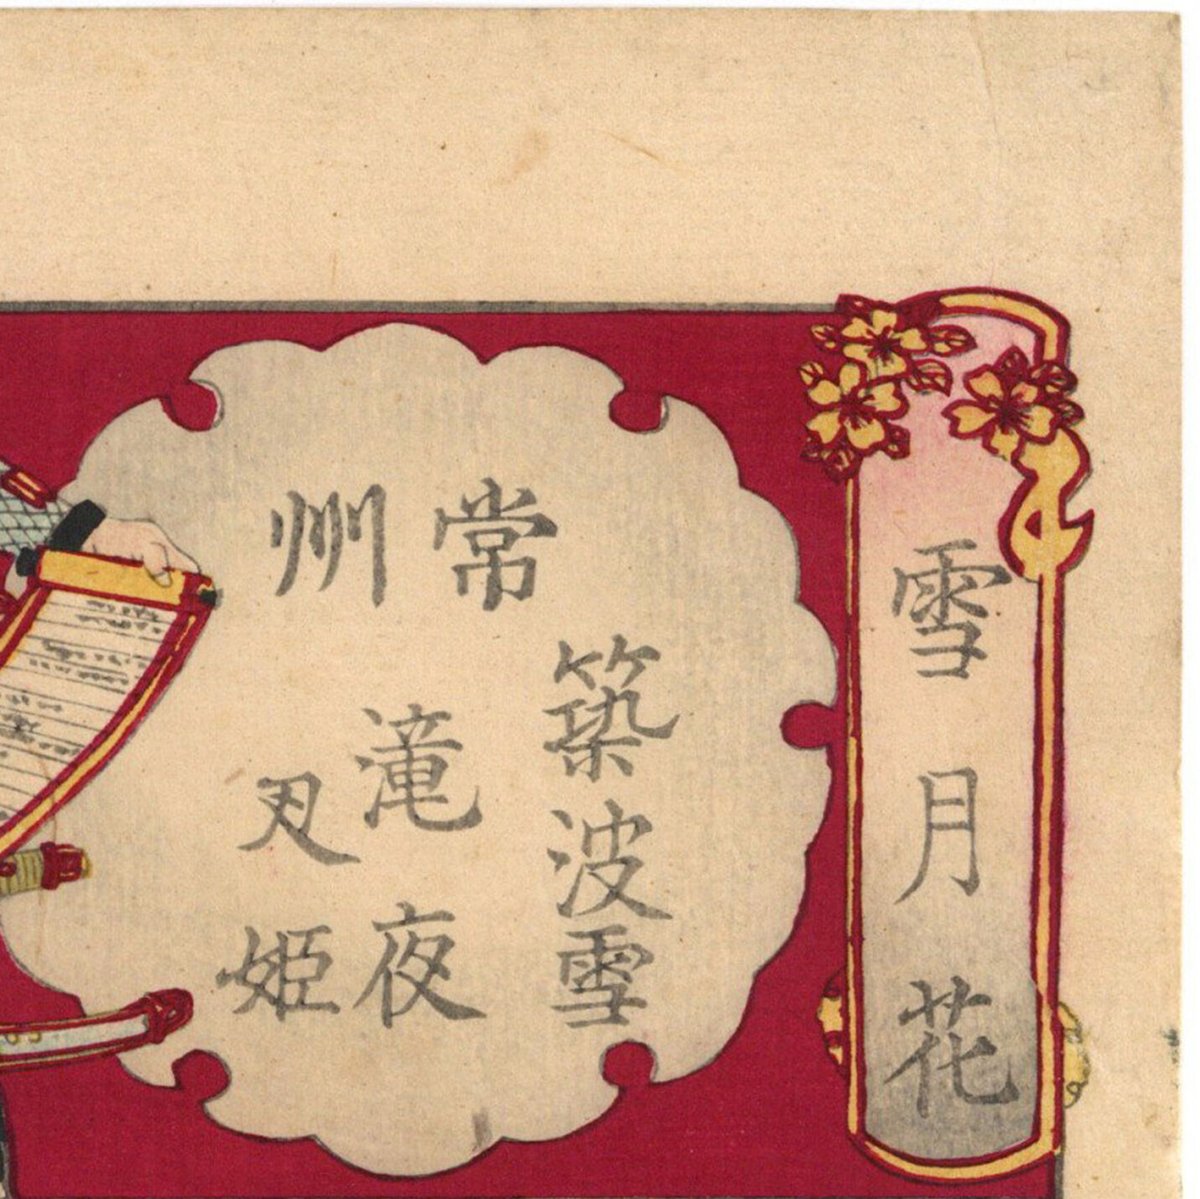 雪月花
常州
築波雪
滝夜
叉姫